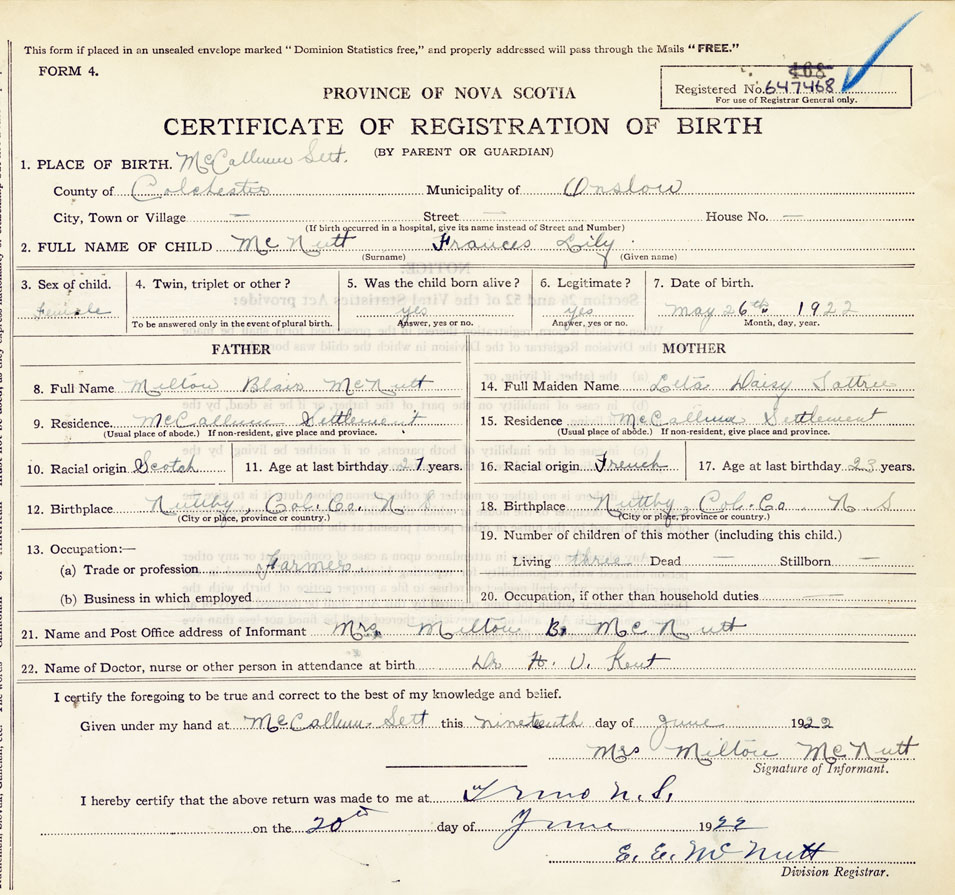 This form if placed in an unsealed envelope marked "Dominion Statistics free," and properly addressed will pass through the Mails "FREE."
FORM 4.
468
Registered No. 647468
For use of Registrar General only.
PROVINCE OF NOVA SCOTIA
CERTIFICATE OF REGISTRATION OF BIRTH
(BY PARENT OR GUARDIAN)
1. PLACE OF BIRTH. McCallum Sett.
County of Colchester Municipality of Onslow
City, Town or Village — Street — House No. —
(If birth occurred in a hospital, give its name instead of Street and Number)
2. FULL NAME OF CHILD McNutt Frances Lily
(Surname) (Given name)
3. Sex of child. 4. Twin, triplet or other? 5. Was the child born alive? 6. Legitimate? 7. Date of birth.
Female yes yes May 26th 1922
To be answered only in the event of plural birth. Answer, yes or no. Answer, yes or no. Month, day, year.
FATHER MOTHER
8. Full Name Milton Blair McNutt 14. Full Maiden Name Daisy
9. Residence. McCallum Settlement 15. Residence McCallum Settlement
(Usual place of abode.) If non-resident, give place and province. (Usual place of abode.) If non-resident, give place and province.
10. Racial origin Scotch 11. Age at last birthday 27 years. 16. Racial origin French 17. Age at last birthday 23 years.
12. Birthplace Nuttby, Col. Co. N S 18. Birthplace Nuttby, Col. Co. N. S
(City or place, province or country.) (City or place, province or country.)
13. Occupation:— 19. Number of children of this mother (including this child.)
(a) Trade or profession Farmer Living three Dead — Stillborn —
(b) Business in which employed 20. Occupation, if other than household duties —
21. Name and Post Office address of Informant Mrs. Milton B. McNutt
22. Name of Doctor, nurse or other person in attendance at birth Dr H. V. Kent
I certify the foregoing to be true and correct to the best of my knowledge and belief.
Given under my hand at McCallum Sett this nineteenth day of June 1922
Mrs Milton McNutt
Signature of Informant.
I hereby certify that the above return was made to me at Truro N.S.
on the 20th day of June 1922
E. E. McNutt
Division Registrar.